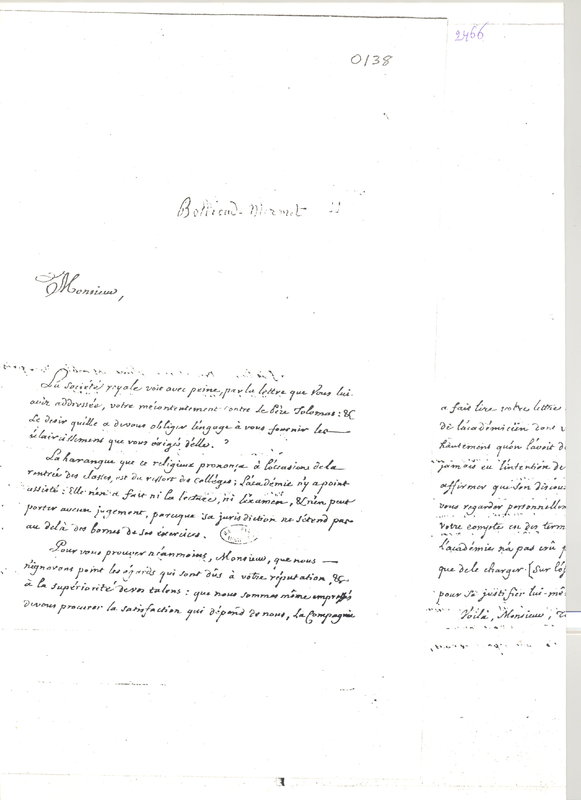 2466
0138
Bollioud-Mermet
Monsieur,
La société royale voit avec peine, par la lettre que vous lui
avés addressée, votre mécontentement contre le Père Tolomas : &
Le desir quelle a de vous obliger l'engage à vous fournir les
éclaircissemens que vous éxigés d'elle.
La harangue que ce religieux prononça à l'occasion de la
rentrée des classes, est du ressort des collèges ; L'académie n'y a point
assisté : Elle n'en a fait ni la lecture, ni l'éxamen, & n'en peut
porter aucun jugement, parceque sa jurisdiction ne s'étend pas
au delà des bornes de ses éxercices.
Pour vous prouver néanmoins, Monsieur, que nous
n'ignorons point les égards qui sont dûs à vôtre réputation, &
à la supériorité de vos talens : que nous sommes même empressés
de vous procurer la satisfaction qui dépend de nous, La Compagnie
a fait lire votre lettre
de l'académicien dont v
hautement qu'on l'avoit d
jamais eu l'intention de
affirmer que son discou
vous regarder personnellem
votre compte en des term
L'académie n'a pas crû p
que de le charger (sur l'o
pour se justifier lui-mê
Voilà, Monsieur,